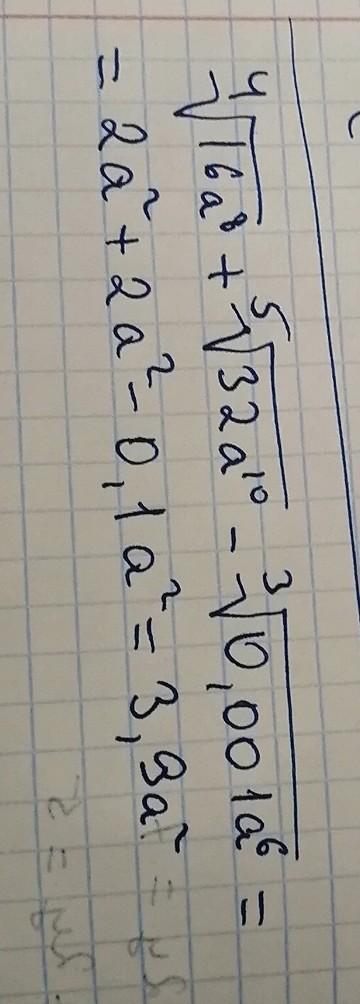 ⁴√16a⁸ + ⁵√32a¹⁰ - ³√0,001a⁶ =
= 2a² + 2a² - 0,1a² = 3,9a²